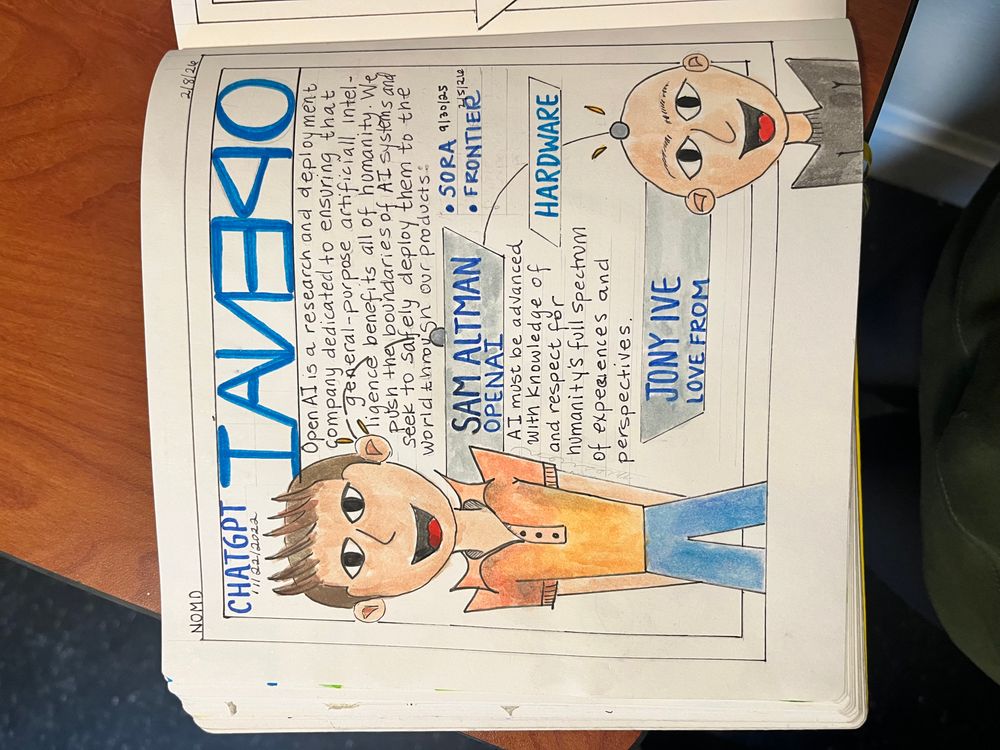 NOMD 2/8/26
CHATGPT
11/22/2022
OPENAI
Open AI is a research and deployment
Company dedicated to ensuring that
general-purpose artificiall intel-
ligence benefits all of humanity. We
push the boundaries of AI systems and
seek to safely deploy them to the
world through our products:
• SORA 9/30/25
• FRONTIER 2/5/26
SAM ALTMAN
OPENAI
AI must be advanced
with Knowledge of
and respect for
humanity's full spectrum
of experiences and
perspectives.
HARDWARE
JONY IVE
LOVE FROM